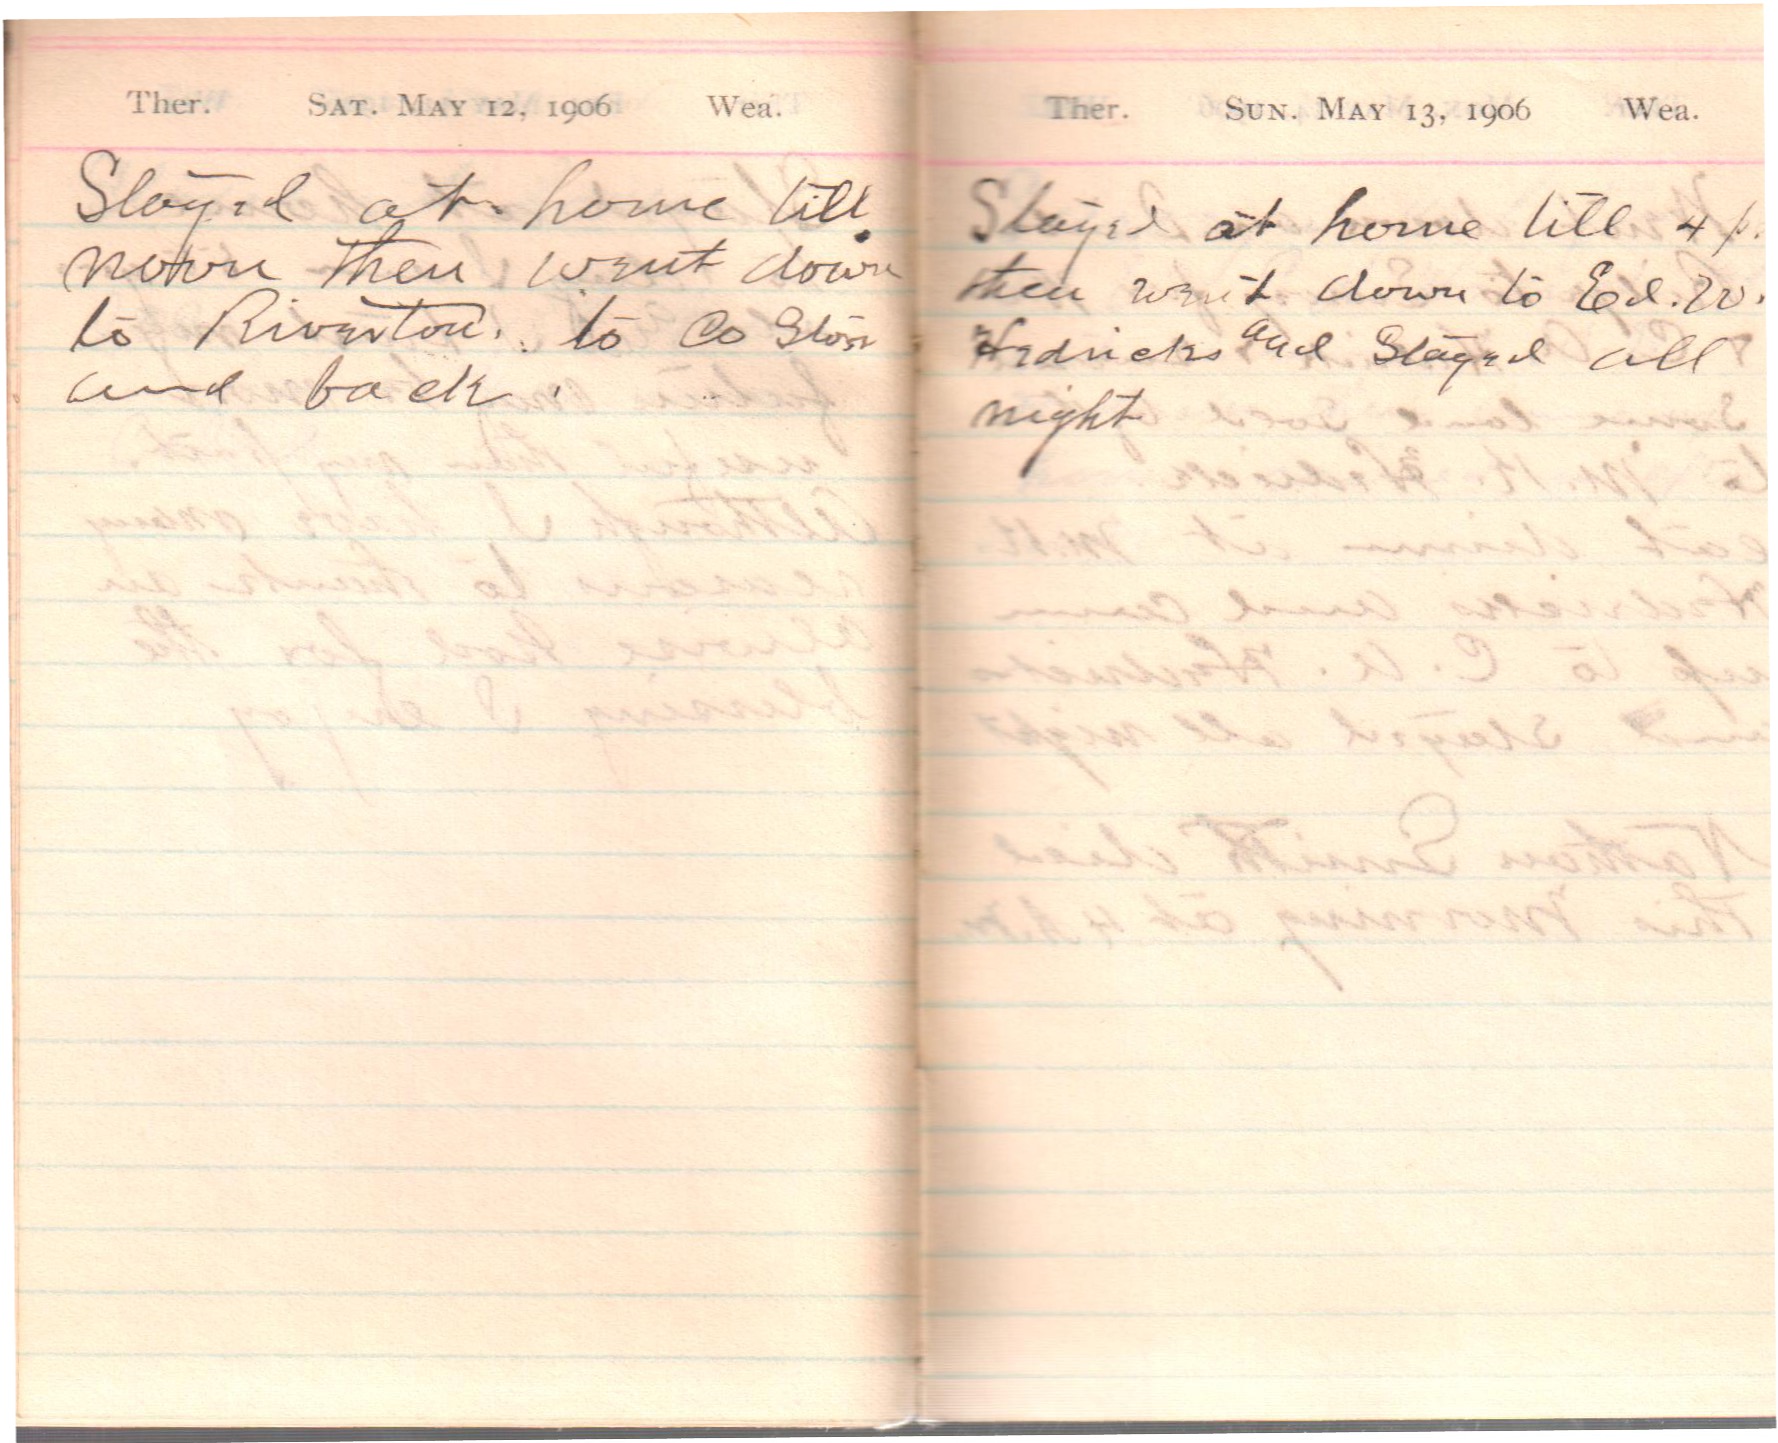 Ther. SAT. MAY 12, 1906 Wea.
Stayed at home till
noon then went down
to Riverton. to Co Store
and back.
Ther. SUN. MAY 13, 1906 Wea.
Stayed at home till 4 p.
then went down to Ed. W.
Hedricks and Stayed all
night